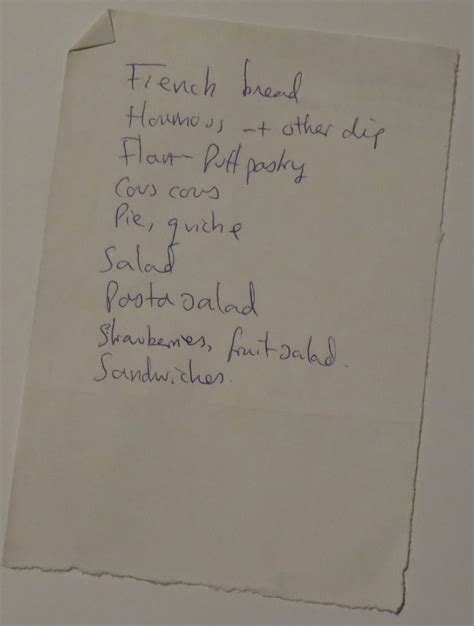 French bread
Houmous + other dip
Flan - Puff pastry
Cous cous
Pie, quiche
Salad
Pasta salad
Strawberries, fruit salad.
Sandwiches.